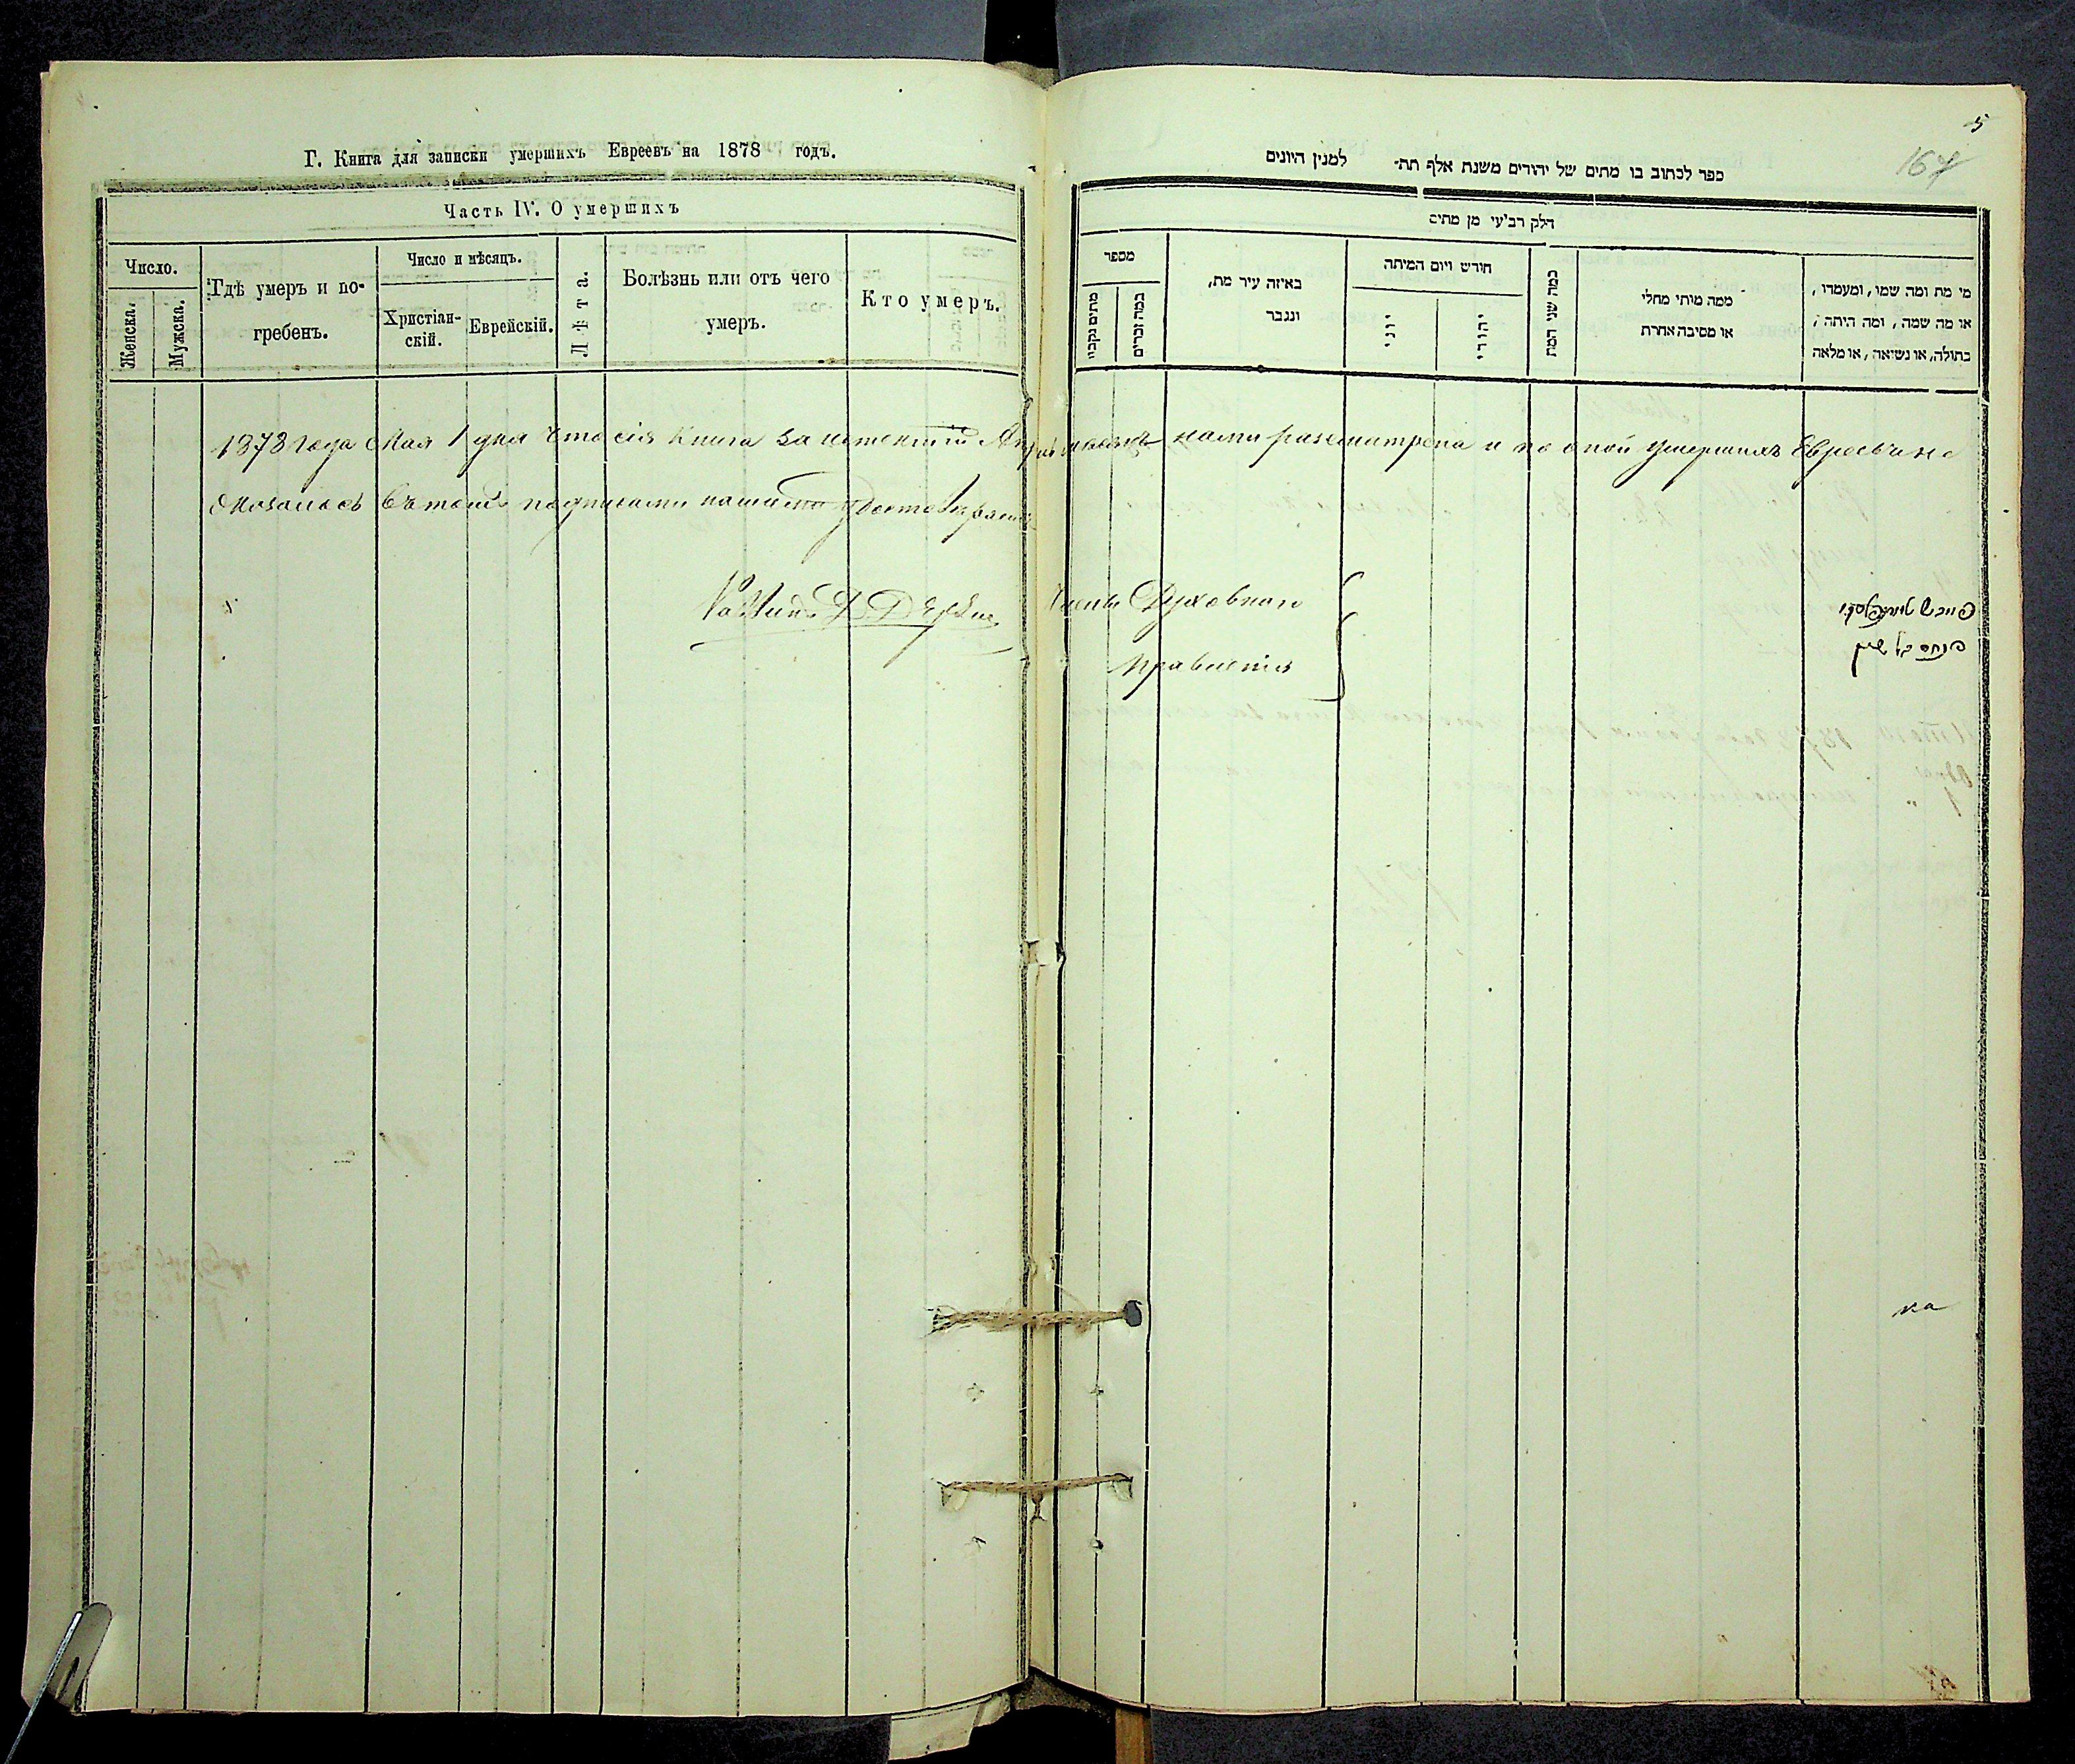 Г. Книга для записки умершихъ Евреевъ на 1878 годъ.
Часть IV. О умершихъ
Число.
Женска.
Мужска.
Гдѣ умеръ и по-
гребенъ.
Число и мѣсяцъ.
Христіан-
скій.
Еврейскій.
Лѣта.
Болѣзнь или отъ чего
умеръ.
Кто умеръ.
5
167
ספר לכתוב בו מתים של יהודים משנת אלף תת״ למנין היונים
חלק רביעי מן מתים
מספר
מתים נקביו
במה זכרים
באיזה עיר מת,
ונגבר
חודש ויום המיתה
יוני
יהודי
כמה שני המת
ממה מיתי מחלי
או מסיבה אחרת
מי מת ומה שמו, ומעמדו,
או מה שמה, ומה היתה,
בתולה, או נשיאה, או מלאה
1878 года Мая 1 дня Что сія Книга за истекшій Апрѣль мѣсяцъ нами разсмотрена и по оной умершихъ Евреевъ не
оказалось Въ томъ подписами нашими удостовѣряемъ
Раввинъ Членъ Духовнаго
Правленія
на